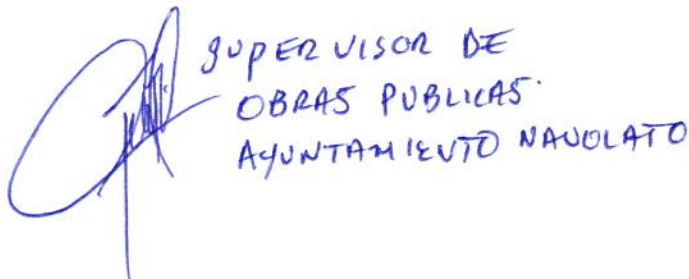 SUPERVISOR DE
OBRAS PUBLICAS.
AYUNTAMIENTO NAVOLATO